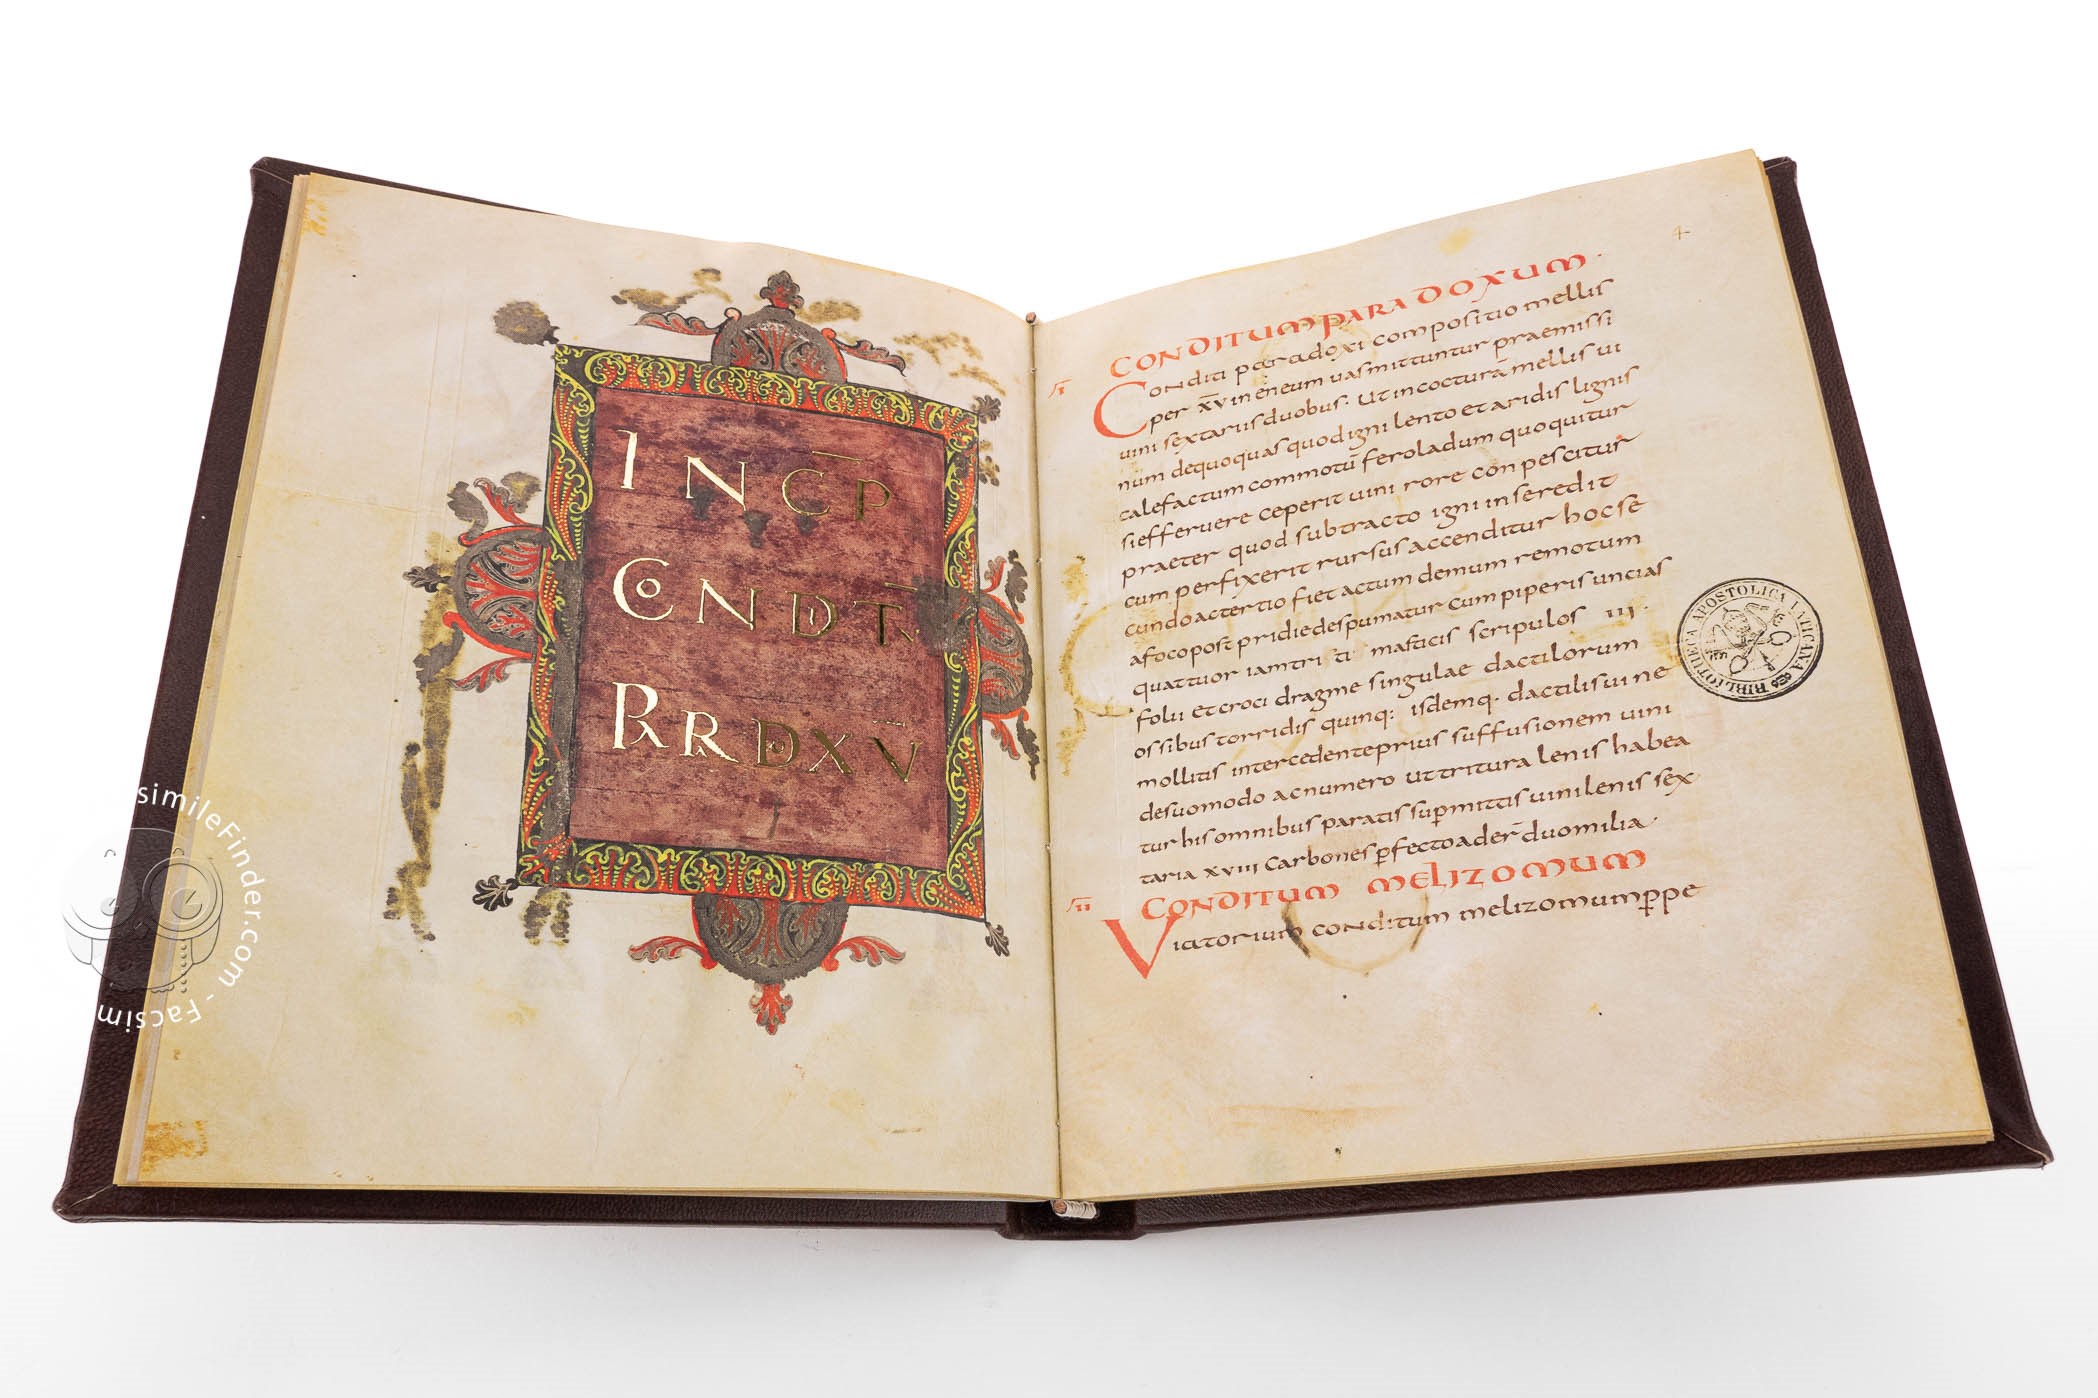 INCP
CONDT
RRDXV
4
CONDITUM PARADOXUM.
I
Conditi paradoxi compositio mellis
per XV in eneum uas mittuntur praemissi
uini sextarus duobus. Ut in cocturā mellis ui
num dequoquas quod igni lento et aridis lignis
calefactum commotū feroladum quoquitur
si efferuere ceperit uini rore conpescitur
praeter quod subtracto igni in seredit
cum perfixerit rursus accenditur hoc se
cundo ac tertio fiet ac tum demum remotum
a foco post pridie despumatur cum piperis uncias
quattuor iam tri ti masticis scripulos III.
folii et croci dragme singulae dactilorum
ossibus torridis quinq; isdemq. dactilis uine
mollitis intercedente prius suffusionem uini
desuo modo ac numero ut tritura lenis habea
tur his omnibus paratis supmittis uini lenis sex
taria XVIII carbones pfecto ader duomilia.
II
CONDITUM MELIZOMUM
Viatorium conditum melizomum ppe
BIBLIOTHECA APOSTOLICA VATICANA
FacsimileFinder.com - Facsim